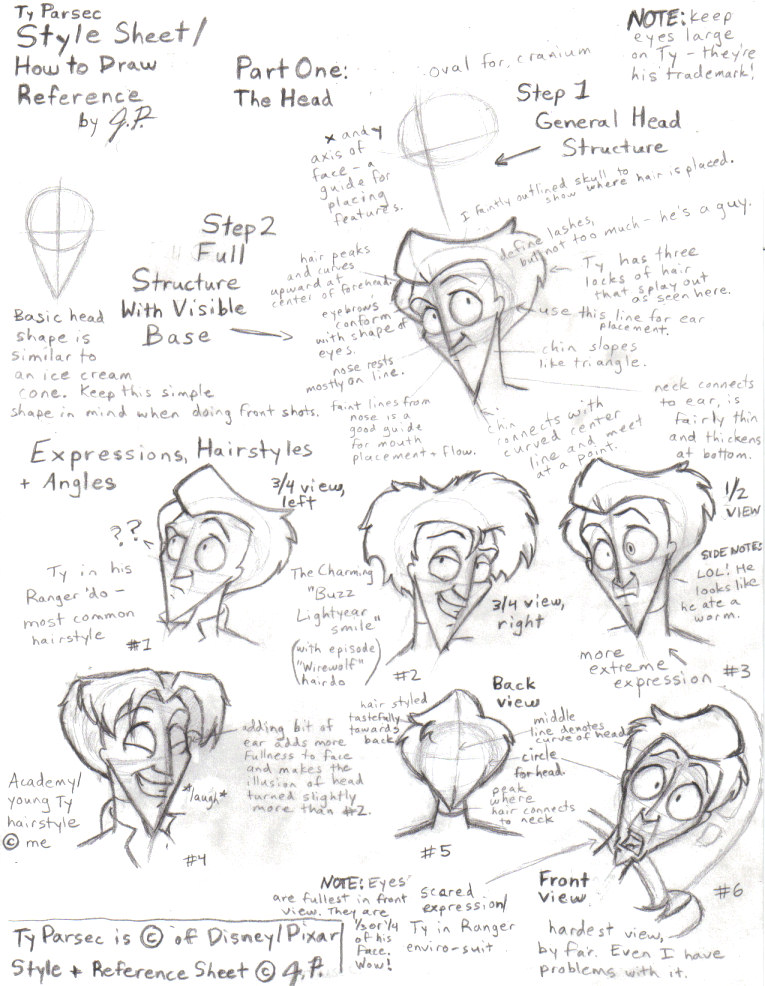 Ty Parsec
Style Sheet/
How to Draw
Reference
by J.P.
Part One:
The Head
NOTE: keep
eyes large
on Ty - they're
his trademark!
oval for cranium
Step 1
General Head
Structure
x and y
axis of
face - a
guide for
placing
features.
I faintly outlined skull to
show where hair is placed.
Step 2
Full
Structure
With Visible
Base
Basic head
shape is
similar to
an ice cream
cone. Keep this simple
shape in mind when doing front shots.
hair peaks
and curves
upward at
center of forehead.
eyebrows
conform
with shape of
eyes.
nose rests
mostly on line.
faint lines from
nose is a
good guide
for mouth
placement + flow.
define lashes,
but not too much - he's a guy.
Ty has three
locks of hair
that splay out
as seen here.
use this line for ear
placement.
chin slopes
like triangle.
neck connects
to ear, is
fairly thin
and thickens
at bottom.
chin
connects with
curved center
line and meet
at a point.
Expressions, Hairstyles
+ Angles
3/4 view,
left
??
Ty in his
Ranger 'do -
most common
hairstyle
#1
The Charming
"Buzz
Lightyear
smile"
(with episode
"Wirewolf"
hairdo)
#2
3/4 view,
right
1/2
VIEW
SIDE NOTE:
LOL! He
looks like
he ate a
worm.
more
extreme
expression
#3
Academy/
young Ty
hairstyle
© me
*laugh*
#4
adding bit of
ear adds more
fullness to face
and makes the
illusion of head
turned slightly
more than #2.
hair styled
tastefully
towards
back
Back
view
middle
line denotes
curve of head
circle
for head.
peak
where
hair connects
to neck
#5
NOTE: Eyes
are fullest in front
view. They are
1/3 or 1/4
of his
face.
Wow!
scared
expression/
Ty in Ranger
enviro-suit
Front
View
#6
hardest view,
by far. Even I have
problems with it.
Ty Parsec is © of Disney/Pixar
Style + Reference Sheet © J.P.